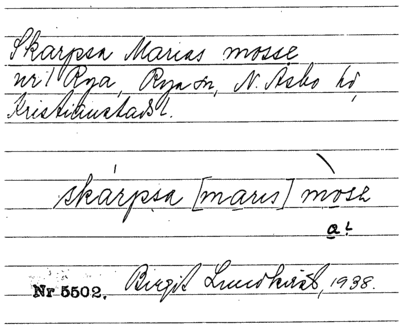 Skarpsa Marias mosse
nr 1 Rya, Rya sn, N. Åsbo hd,
Kristianstads l.
skarpsa [maris] mosɘ
a!
Nr 5502. Birgit Lundkvist, 1938.